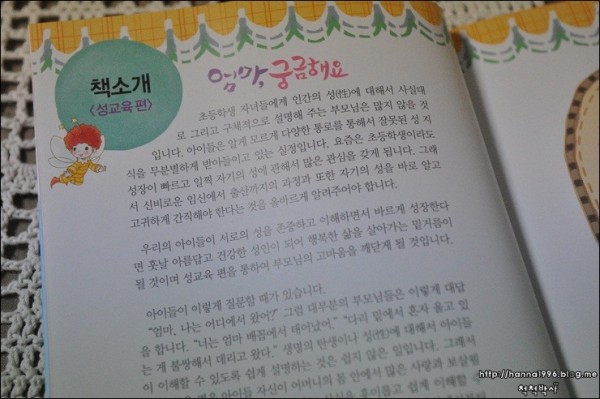 책소개
<성교육 편>
엄마, 궁금해요
초등학생 자녀들에게 인간의 성(性)에 대해서 사실대
로 그리고 구체적으로 설명해 주는 부모님은 많지 않을 것
입니다. 아이들은 알게 모르게 다양한 통로를 통해서 잘못된 성 지
식을 무분별하게 받아들이고 있는 실정입니다. 요즘은 초등학생이라도
성장이 빠르고 일찍 자기의 성에 관해서 많은 관심을 갖게 됩니다. 그래
서 신비로운 임신에서 출산까지의 과정과 또한 자기의 성을 바로 알고
고귀하게 간직해야 한다는 것을 올바르게 알려주어야 합니다.
우리의 아이들이 서로의 성을 존중하고 이해하면서 바르게 성장한다
면 훗날 아름답고 건강한 성인이 되어 행복한 삶을 살아가는 밑거름이
될 것이며 성교육 편을 통하여 부모님의 고마움을 깨닫게 될 것입니다.
아이들이 이렇게 질문할 때가 있습니다.
"엄마, 나는 어디에서 왔어?" 그럼 대부분의 부모님들은 이렇게 대답
을 합니다. "너는 엄마 배꼽에서 태어났어." "다리 밑에서 혼자 울고 있
는 게 불쌍해서 데리고 왔다." 생명의 탄생이나 성(性)에 대해서 아이들
이 이해할 수 있도록 쉽게 설명하는 것은 쉽지 않은 일입니다. 그래서
은 아이들 자신이 어머니의 몸 안에서 많은 사랑과 보살핌
흥미롭고 쉽게 이해할 수
http://hanna1996.blog.me
척척박사